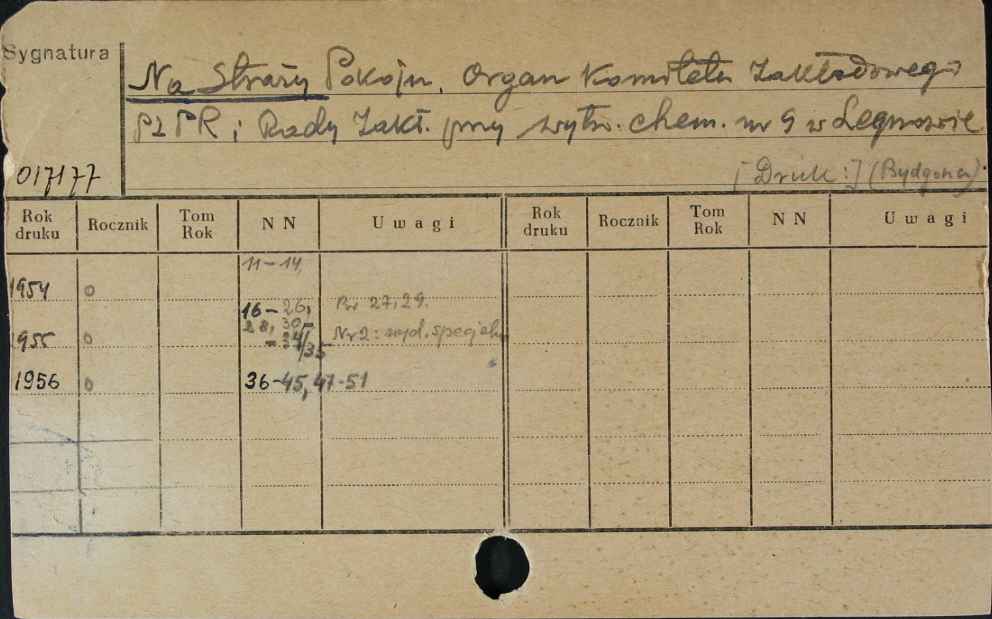 Sygnatura
Na Straży Pokoju. Organ Komitetu Zakładowego
PZPR i Rady Zakł. przy wytw. chem. nr 9 w Łęgnowie.
017177
[Druk:] (Bydgoszcz).
Rok druku Rocznik Tom Rok NN Uwagi Rok druku Rocznik Tom Rok NN Uwagi
11-14,
1954 0
16-26, Br 27, 29.
28, 30- Nr 2: wyd. specjalne
1955 0 -34/35
1956 0 36-45, 47-51